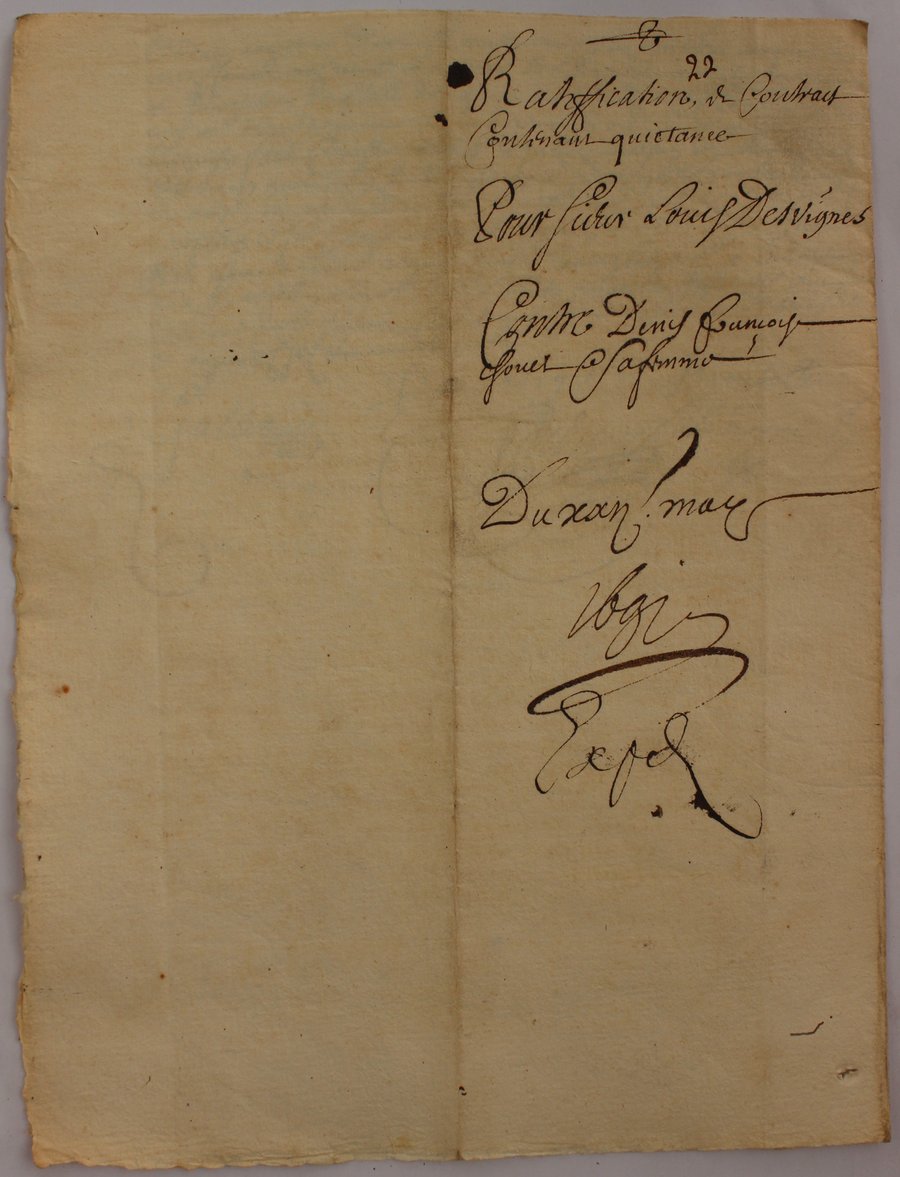 22
Ratiffication, de Contract
Contenant quictance
Pour sieur Louis Desvignes
Contre Denis francois
Chouet & sa femme
Du xxii. may
1691
Expd